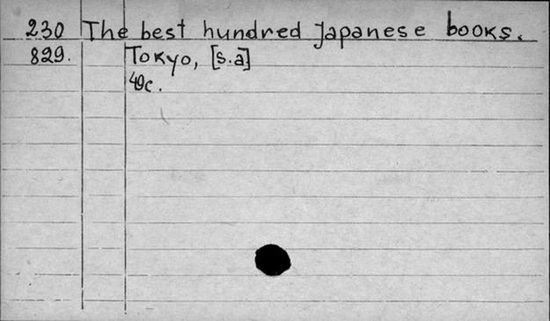 230 The best hundred Japanese books.
829. Tokyo, [s.a]
49c.